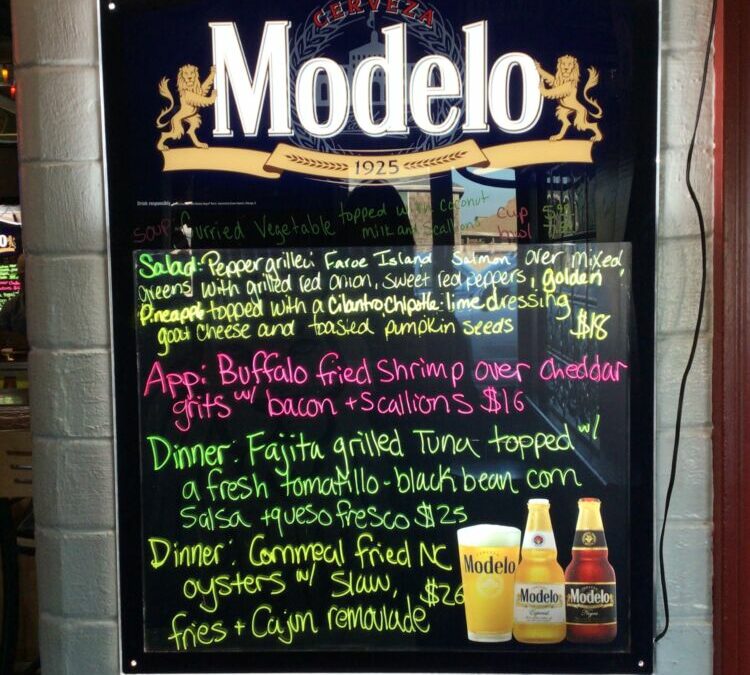 CERVEZA
Modelo
1925
Drink responsibly.
Soup: Curried Vegetable topped with coconut cup
milk and scallions bowl
Salad: Pepper grilled Faroe Island Salmon over mixed
greens with grilled red onion, sweet red peppers, golden
Pineapple topped with a Cilantro Chipotle-lime dressing
goat cheese and toasted pumpkin seeds $18
App: Buffalo fried Shrimp over cheddar
grits w/ bacon + scallions $16
Dinner: Fajita grilled Tuna topped w/
a fresh tomatillo-black bean corn
Salsa + queso fresco $25
Dinner: Cornmeal fried NC
oysters w/ Slaw, $26
fries + Cajun remoulade
Modelo
Modelo
Especial
Modelo
Negra